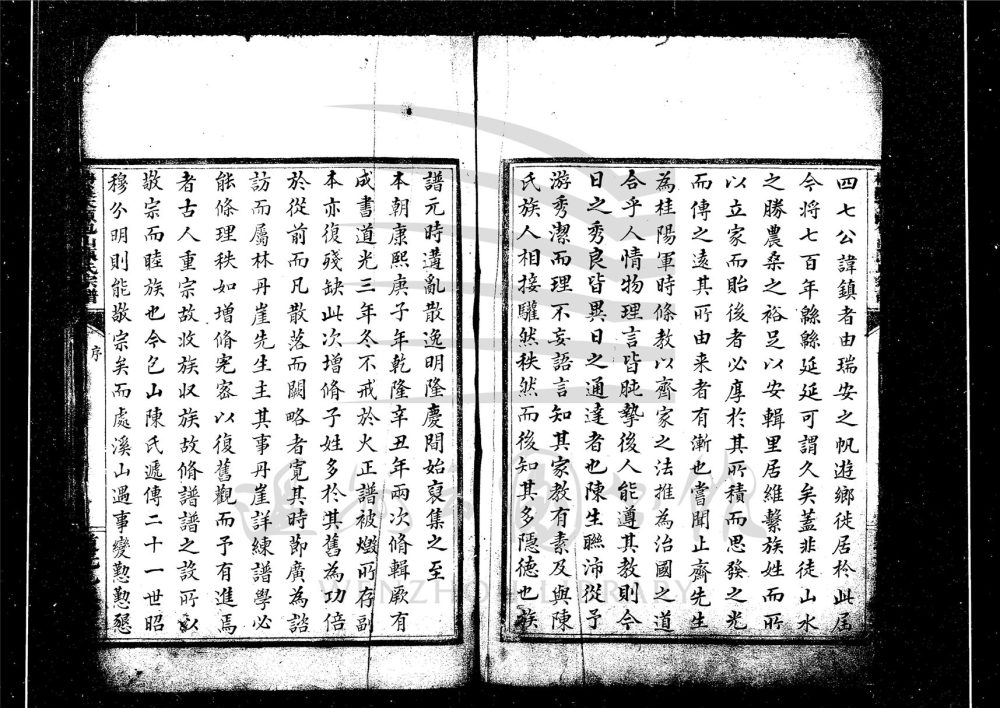 四七公諱鎮者由瑞安之帆遊鄉徙居於此届
今将七百年緜緜延延可謂久矣蓋非徒山水
之勝農桑之裕足以安輯里居維繫族姓而所
以立家而貽後者必厚於其所積而思發之光
而傳之遠其所由来者有漸也嘗聞止齋先生
為桂陽軍時條教以齊家之法推為治國之道
合乎人情物理言皆肫摯後人能遵其教則今
日之秀良皆異日之通達者也陳生聯沛從予
游秀潔而理不妄語言知其家教有素及與陳
氏族人相接驩然秩然而後知其多隱德也族
譜元時遘亂散逸明隆慶間始裒集之至
本朝康熙庚子年乾隆辛丑年兩次脩輯厥有
成書道光三年冬不戒於火正譜被燬所存副
本亦復殘缺此次增脩子姓多於其舊為功倍
於從前而凡散落而闕略者寬其時節廣為諮
訪而屬林丹崖先生主其事丹崖詳練譜學必
能條理秩如增脩完密以復舊觀而予有進焉
者古人重宗故收族収族故脩譜譜之設所以
敬宗而睦族也今乞山陳氏遞傳二十一世昭
穆分明則能敬宗矣而處溪山遇事變懃懃懇
序
WENZHOU LIBRARY